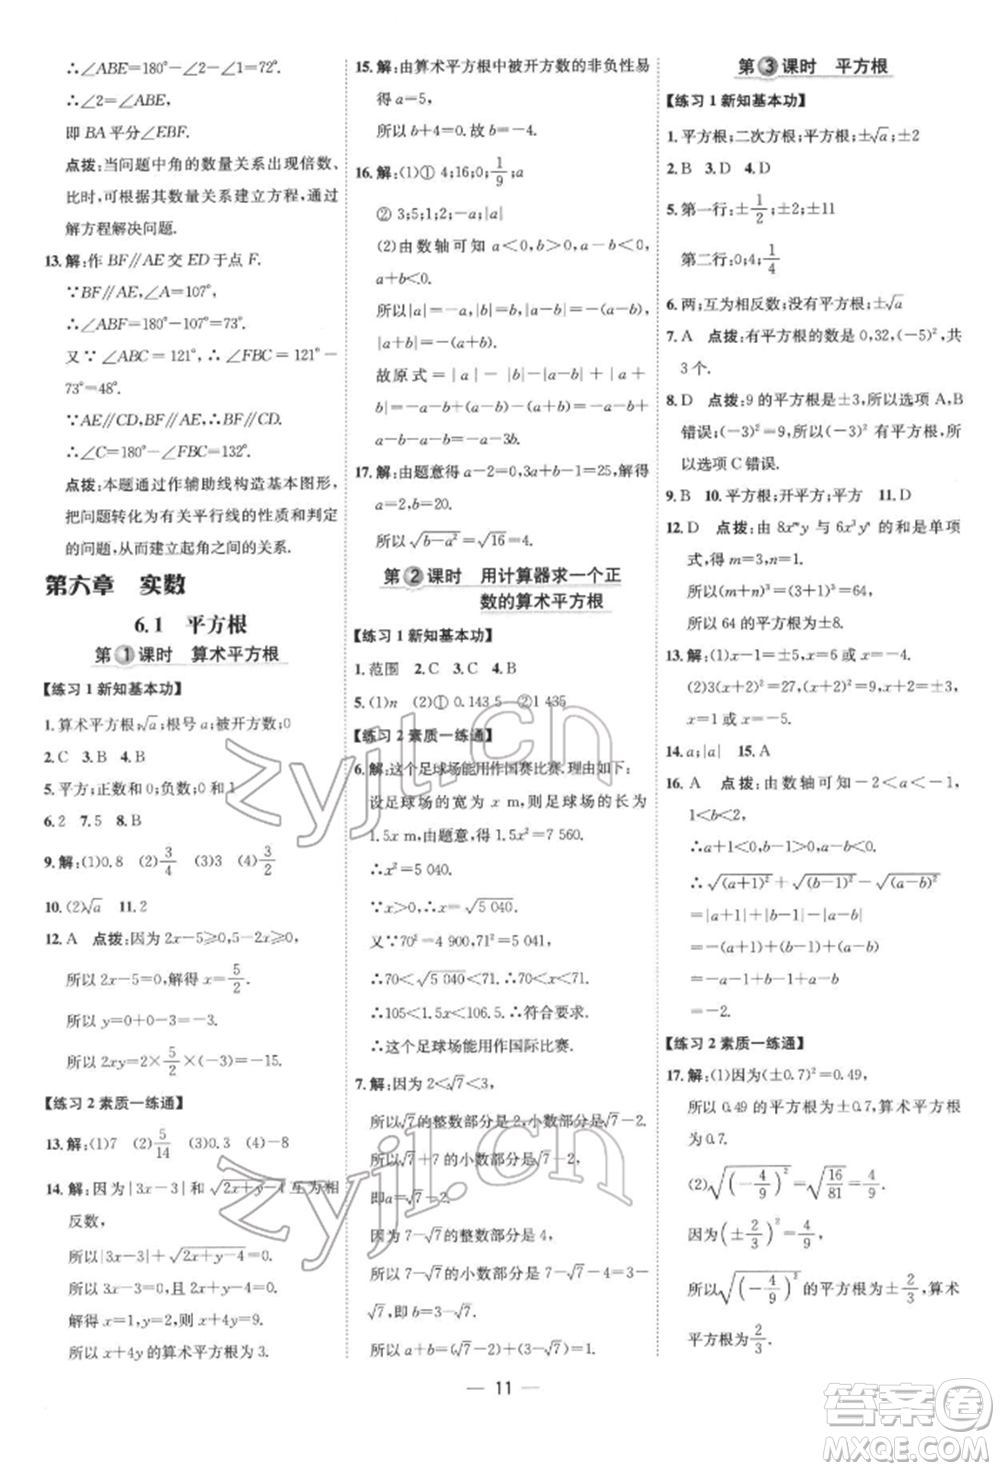 ∴∠ABE=180°-∠2-∠1=72°.
∴∠2=∠ABE,
即 BA 平分∠EBF.
点拨:当问题中角的数量关系出现倍数、
比时,可根据其数量关系建立方程,利用
解方程解决问题.
13.解:作 BF∥AE 交 ED 于点 F.
∵BF∥AE,∠A=107°,
∴∠ABF=180°-107°=73°.
又∵∠ABC=121°,∴∠FBC=121°-
73°=48°.
∵AE∥CD,BF∥AE,∴BF∥CD.
∴∠C=180°-∠FBC=132°.
点拨:本题通过作辅助线构造基本图形,
把问题转化为有关平行线的性质和判定
的问题,从而建立起角之间的关系.
第六章 实数
6.1 平方根
第1课时 算术平方根
【练习1新知基本功】
1.算术平方根;√a;根号 a;被开方数;0
2.C 3.B 4.B
5.平方;正数和0;负数;0和1
6.2 7.5 8.B
9.解:(1)0.8 (2)3/4 (3)3 (4)3/2
10.(2)√a 11.2
12.A 点拨:因为 2x-5≥0,5-2x≥0,
所以 2x-5=0,解得 x=5/2.
所以 y=0+0-3=-3.
所以 2xy=2×5/2×(-3)=-15.
【练习2素质一练通】
13.解:(1)7 (2)5/14 (3)0.3 (4)-8
14.解:因为|3x-3|和√(2x+y-4)互为相
反数,
所以|3x-3|+√(2x+y-4)=0.
所以 3x-3=0,且 2x+y-4=0.
解得 x=1,y=2.所以 x+4y=9.
所以 x+4y 的算术平方根为 3.
15.解:由算术平方根中被开方数的非负性易
得 a=5,
所以 b+4=0.故 b=-4.
16.解:(1)① 4;16;0;1/9;a
② 3;5;1;2;-a;|a|
(2)由数轴可知 a<0,b>0,a-b<0,
a+c<0.
所以|a|=-a,|b|=b,|a-b|=-(a-
b),|a+b|=-(a+b).
故原式=|a|-|b|+|a-b|+|a+
b|=-a-b-(a-b)-(a+b)=-a-
b-a+b-a-b=-3a-b.
17.解:由题意得 a-2=0,3a+b-1=25,解得
a=2,b=20.
所以√(b-a²)=√16=4.
第2课时 用计算器求一个正
数的算术平方根
【练习1新知基本功】
1.范围 2.C 3.C 4.B
5.(1)n (2)① 0.143 5 ②1 435
【练习2素质一练通】
6.解:这个足球场能用作国赛比赛.理由如下:
设足球场的宽为 x m,则足球场的长为
1.5x m,由题意,得 1.5x²=7 560.
∴x²=5 040.
∵x>0,∴x=√5 040.
又∵70²=4 900,71²=5 041,
∴70<√5 040<71.∴70<x<71.
∴105<1.5x<106.5.∴符合要求.
∴这个足球场能用作国际比赛.
7.解:因为 2<√7<3,
所以√7的整数部分是 2,小数部分是√7-2.
所以√7的小数部分是√7-2.
即 a=√7-2.
因为 7-√7的整数部分为 4,
所以 7-√7的小数部分为 7-√7-4=3-
√7,即 b=3-√7.
所以 a+b=(√7-2)+(3-√7)=1.
第3课时 平方根
【练习1新知基本功】
1.平方根;二次方根;平方根;±√a;±2
2.B 3.D 4.D
5.第一行:±1/2;±2;±11
第二行:0;4;1/4
6.两;互为相反数;没有平方根;±√a
7.A 点拨:有平方根的数是 0,32,(-5)²,共
3 个.
8.D 点拨:9 的平方根是±3,所以选项 A,B
错误;(-3)²=9,所以(-3)²有平方根,
所以选项 C 错误.
9.B 10.平方根;开平方;平方 11.D
12.D 点拨:由 8xᵐy 与 6x³yⁿ 的和是单项
式,得 m=3,n=1.
所以(m+n)³=(3+1)³=64.
所以 64 的平方根为±8.
13.解:(1)x-1=±5,x=6 或 x=-4.
(2)3(x+2)²=27,(x+2)²=9,x+2=±3,
x=1 或 x=-5.
14.a;|a| 15.A
16.A 点拨:由数轴可知-2<a<-1,
1<b<2,
∴a+1<0,b-1>0,a-b<0.
∴√(a+1)²+√(b-1)²-√(a-b)²
=|a+1|+|b-1|-|a-b|
=-(a+1)+(b-1)+(a-b)
=-a-1+b-1+a-b
=-2.
【练习2素质一练通】
17.解:(1)因为(±0.7)²=0.49,
所以 0.49 的平方根为±0.7,算术平方根
为 0.7.
(2)√(-4/9)²=√16/81=4/9.
因为(±2/3)²=4/9,
所以√(-4/9)²的平方根为±2/3,算术
平方根为2/3.
— 11 —
zyjl.cn
zyjl.cn
答案卷
MXQE.COM